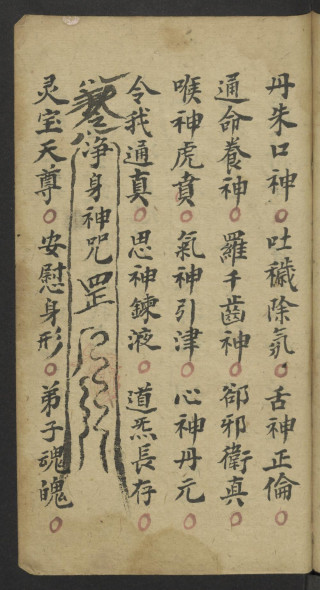 丹朱口神○吐穢除氛○舌神正倫○
通命養神○羅千齒神○卻邪衛真○
喉神虎賁○氣神引津○心神丹元○
令我通真○思神鍊液○道炁長存○
淨身神咒 罡
灵宝天尊○安慰身形○弟子魂魄○